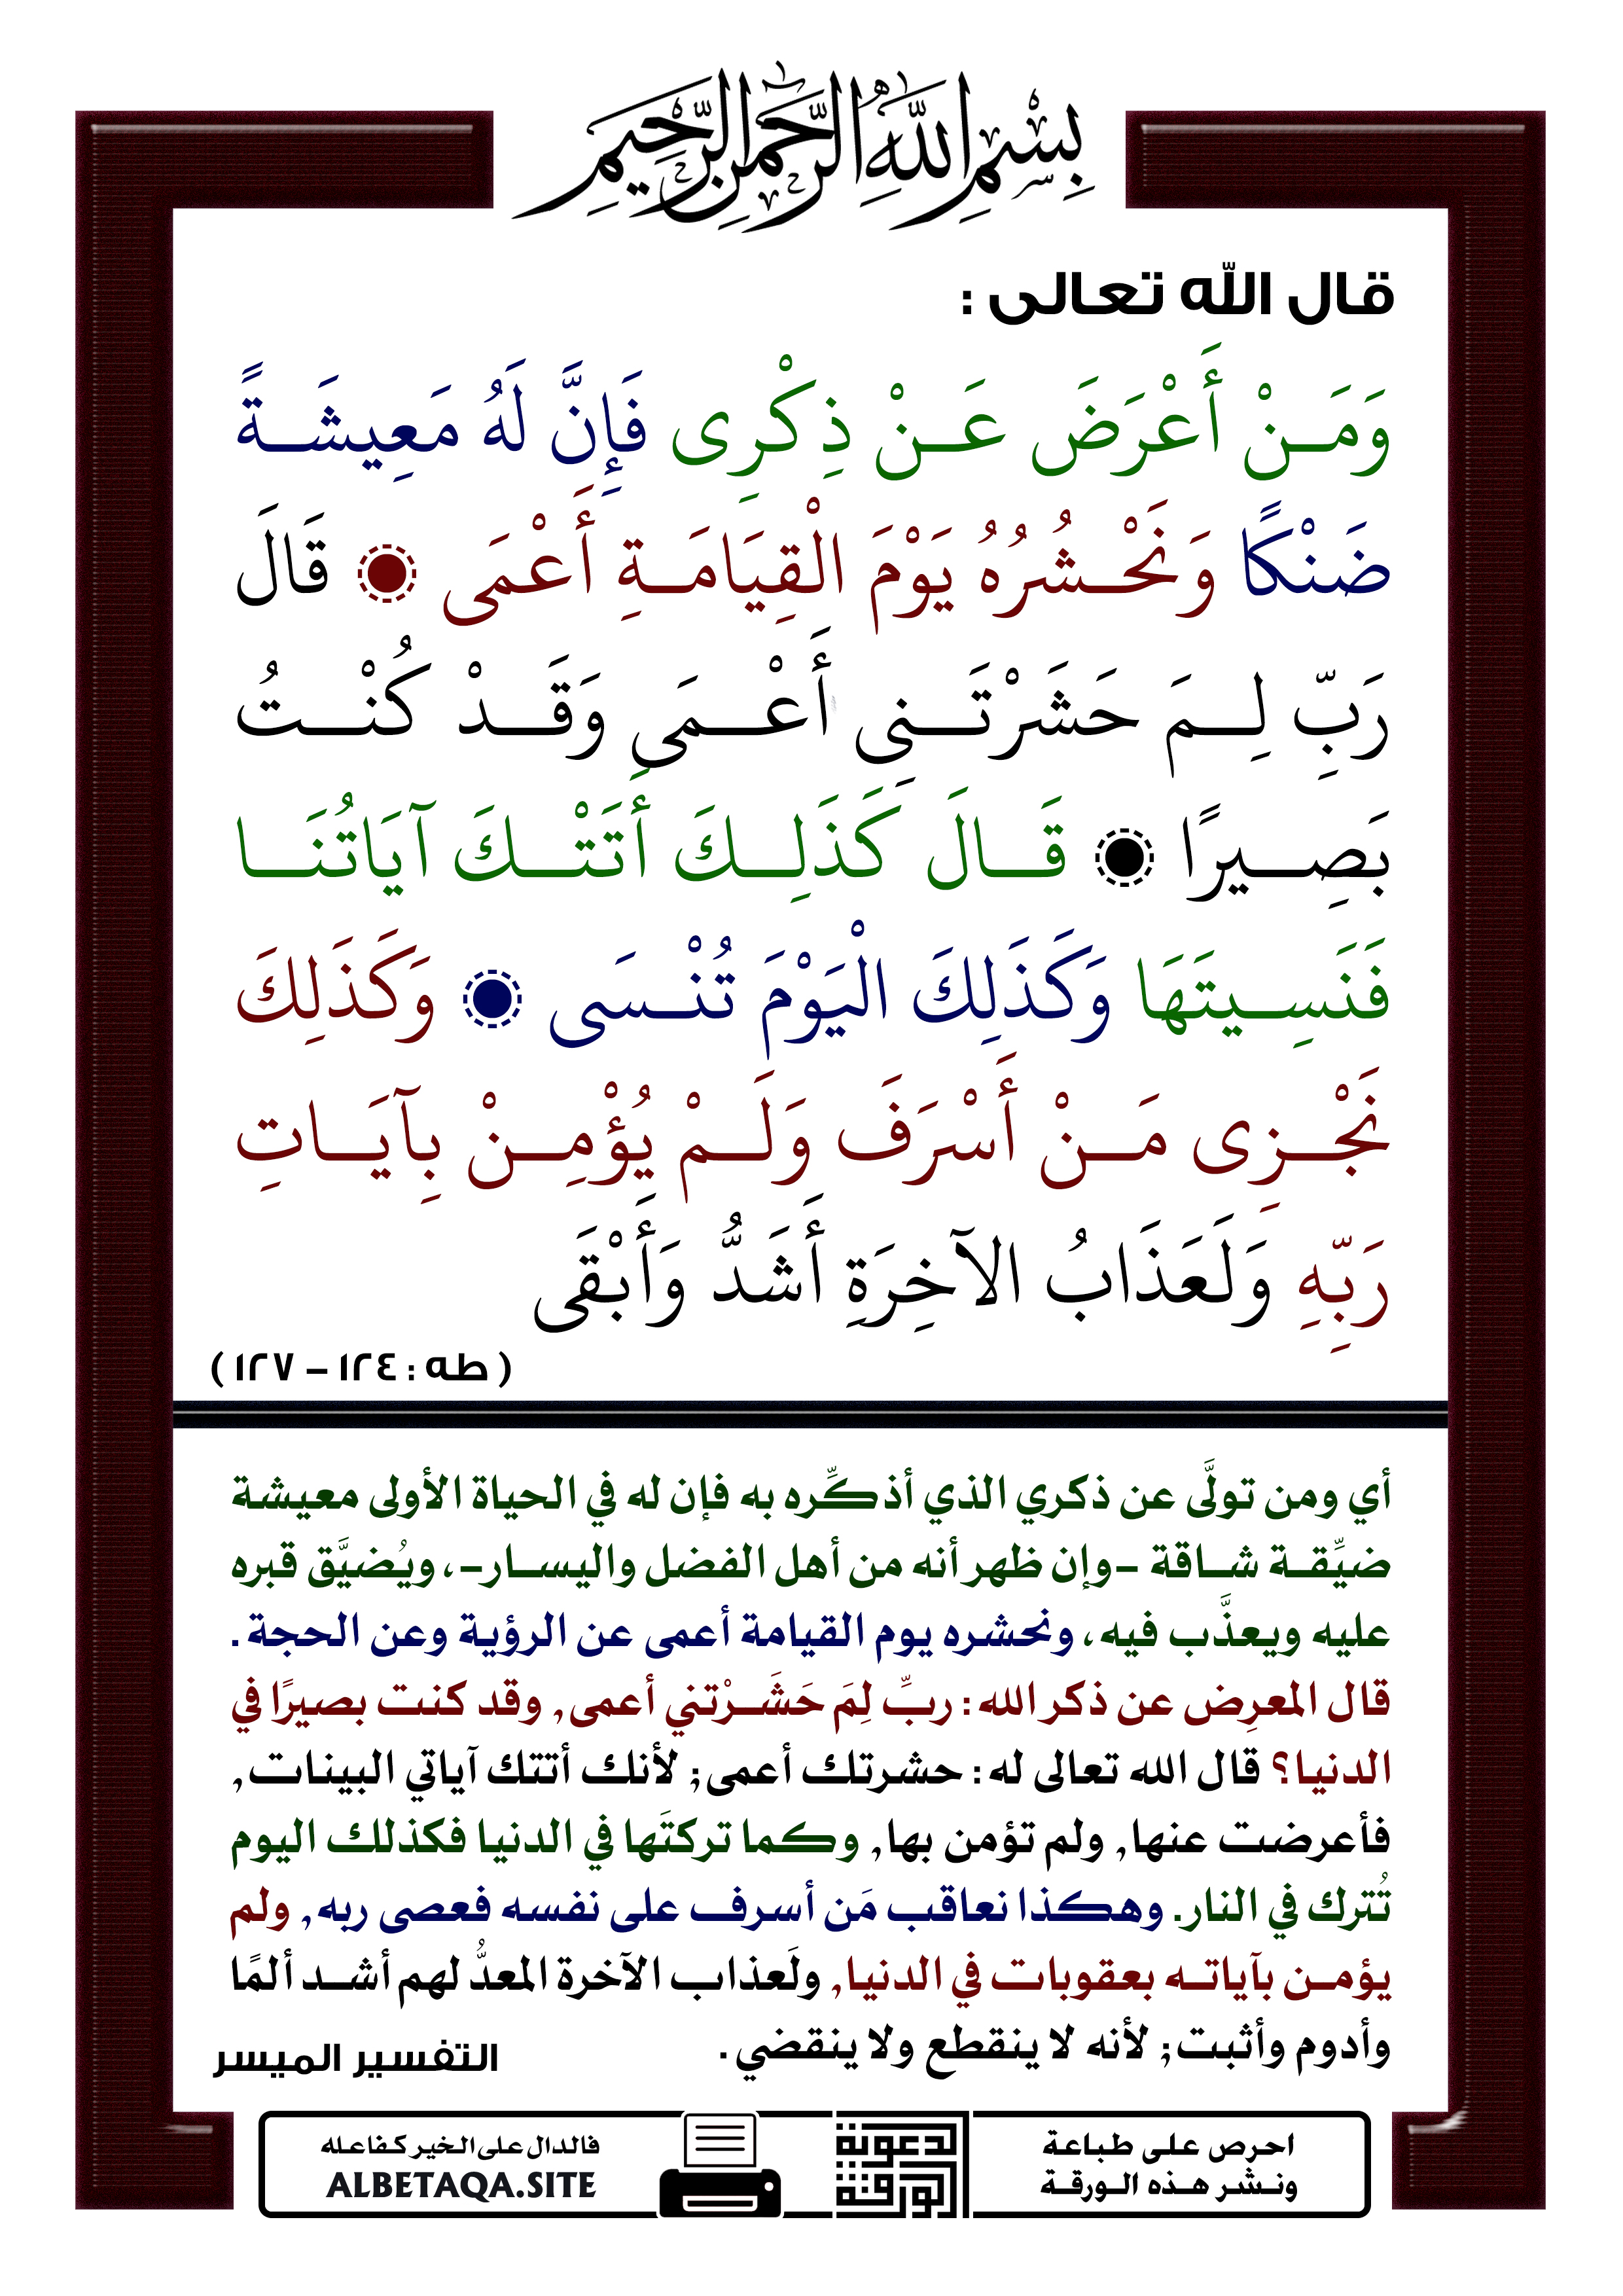 بِسْمِ اللَّهِ الرَّحْمَنِ الرَّحِيمِ
قال الله تعالى :
وَمَنْ أَعْرَضَ عَنْ ذِكْرِى فَإِنَّ لَهُ مَعِيشَةً
ضَنْكًا وَنَحْشُرُهُ يَوْمَ الْقِيَامَةِ أَعْمَى ۝ قَالَ
رَبِّ لِمَ حَشَرْتَنِى أَعْمَى وَقَدْ كُنْتُ
بَصِيرًا ۝ قَالَ كَذَلِكَ أَتَتْكَ آيَاتُنَا
فَنَسِيتَهَا وَكَذَلِكَ الْيَوْمَ تُنْسَى ۝ وَكَذَلِكَ
نَجْزِى مَنْ أَسْرَفَ وَلَمْ يُؤْمِنْ بِآيَاتِ
رَبِّهِ وَلَعَذَابُ الآخِرَةِ أَشَدُّ وَأَبْقَى
( طه : ١٢٤ – ١٢٧ )
أي ومن تولَّى عن ذكري الذي أذكِّره به فإن له في الحياة الأولى معيشة
ضيِّقة شاقة -وإن ظهر أنه من أهل الفضل واليسار-، ويُضيَّق قبره
عليه ويعذَّب فيه، ونحشره يوم القيامة أعمى عن الرؤية وعن الحجة .
قال المعرِض عن ذكر الله : ربِّ لِمَ حَشَرْتني أعمى, وقد كنت بصيرًا في
الدنيا؟ قال الله تعالى له : حشرتك أعمى; لأنك أتتك آياتي البينات,
فأعرضت عنها, ولم تؤمن بها, وكما تركتَها في الدنيا فكذلك اليوم
تُترك في النار. وهكذا نعاقب مَن أسرف على نفسه فعصى ربه, ولم
يؤمن بآياته بعقوبات في الدنيا, ولَعذاب الآخرة المعدُّ لهم أشد ألمًا
وأدوم وأثبت; لأنه لا ينقطع ولا ينقضي .
التفسير الميسر
احرص على طباعة
ونشر هذه الورقة
لدعوية
الورقة
فالدال على الخير كفاعله
ALBETAQA.SITE